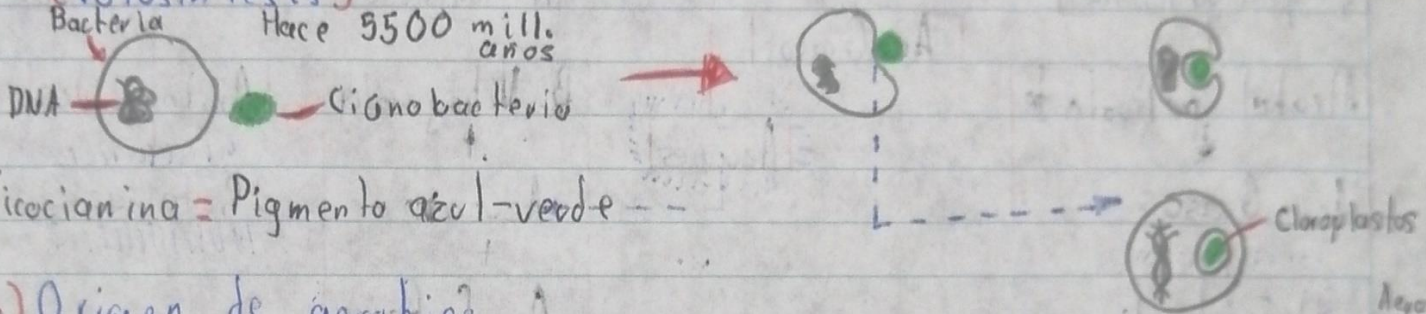 Bacteria
Hace 3500 mill. años
DNA
Cianobacteria
icocianina = Pigmento azul-verde
Cloroplastos
Origen de